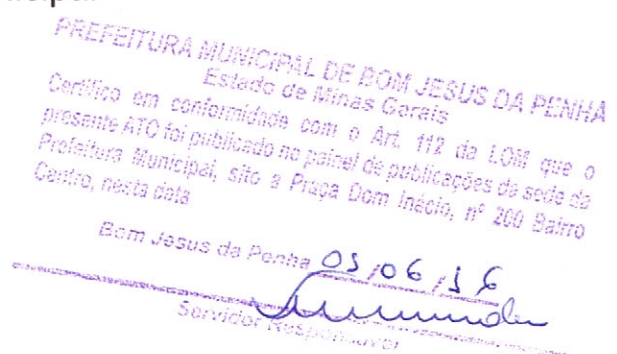 PREFEITURA MUNICIPAL DE BOM JESUS DA PENHA
Estado de Minas Gerais
Certifico em conformidade com o Art. 112 da LOM que o
presente ATO foi publicado no painel de publicações da sede da
Prefeitura Municipal, sito a Praça Dom Inácio, nº 200 Bairro
Centro, nesta data
Bom Jesus da Penha 01/06/16
Servidor Responsável